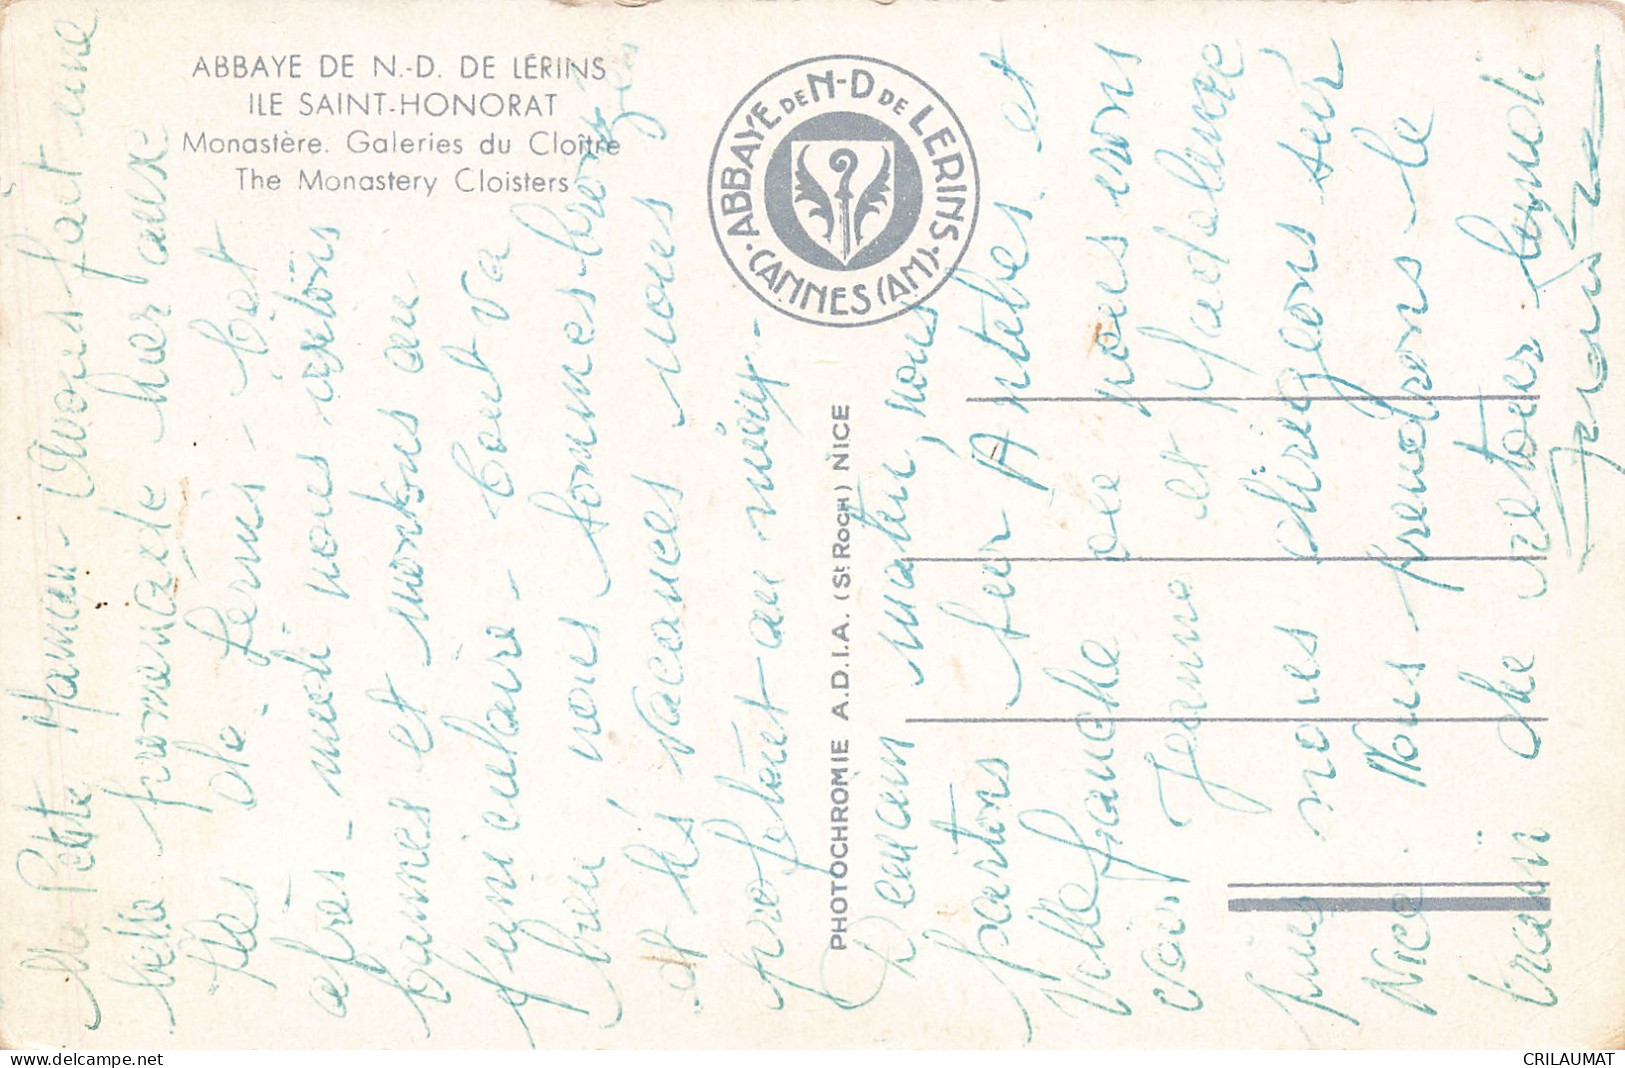 ABBAYE DE N.-D. DE LÉRINS
ILE SAINT-HONORAT
Monastère. Galeries du Cloître
The Monastery Cloisters
ABBAYE DE N-D DE LERINS
CANNES (AM)
PHOTOCHROMIE A.D.I.A. (St ROCH) NICE
Ma Petite Maman - Avons fait une
belle promenade hier aux
îles de Lerins - Cet
après-midi nous visitons
Cannes et montons au
funiculaire - tout va
bien nous sommes bronzés
et les vacances nous
profitent au mieux -
Demain matin, nous
partons sur Antibes et
Villefranche où nous irons
voir Jeanne et Madeleine
puis nous dirigeons sur
Nice. Nous prendrons le
train de retour lundi
www.delcampe.net
CRILAUMAT